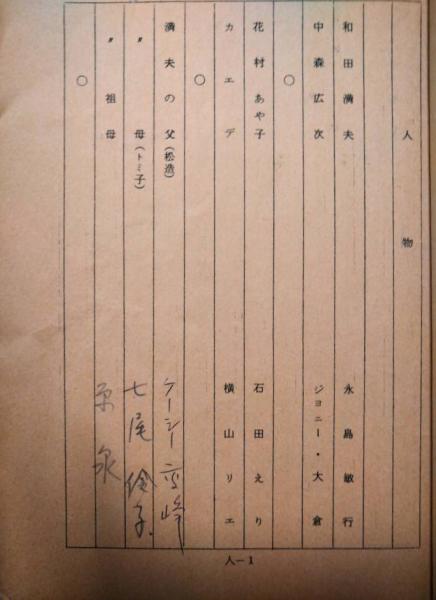 人物
和田満夫 永島敏行
中森広次 ジョニー・大倉
○
花村あや子 石田えり
カエデ 横山リエ
○
満夫の父(松造) ケーシー高峰
〃 母(トミ子) 七尾伶子
〃 祖母 原泉
○
人－1